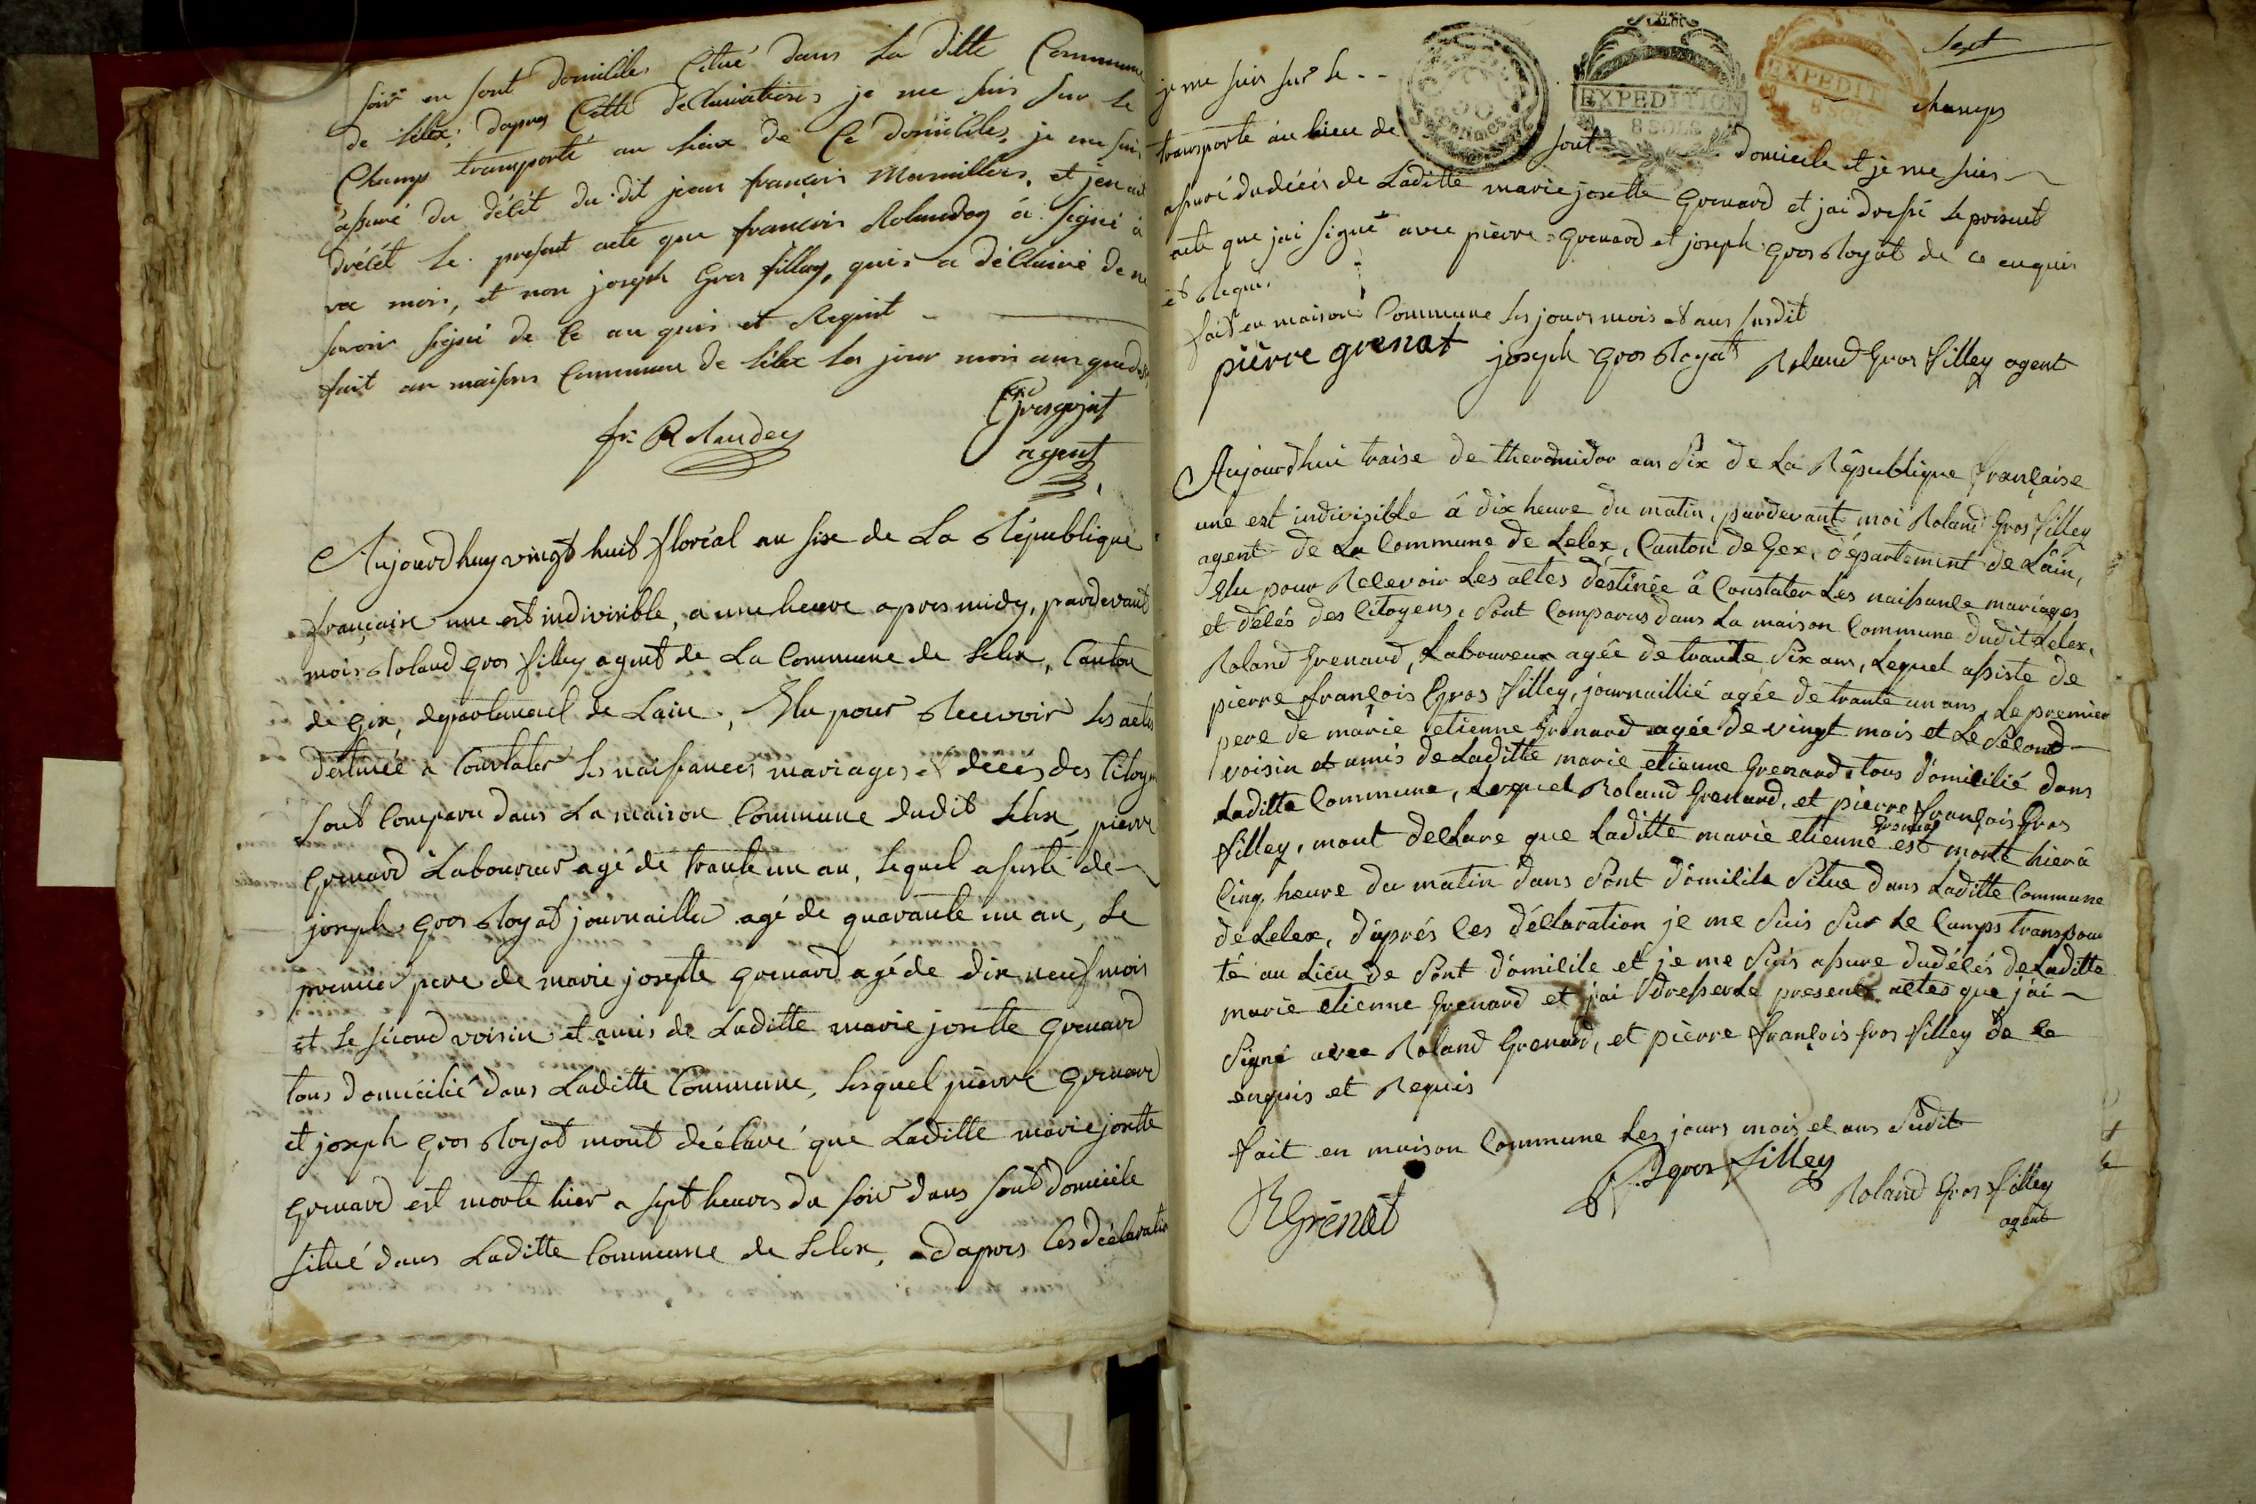 soir en sont domiciles Citué dans La ditte Commune
de Lélex; dapres Cette déclarations je me suis sur le
Champ transporté au Lieux de Ce domiciles, je me suis
assuré du décét du dit jean françois Marmilliers, et j'en ait
drécét le présent acte que françois Rolandey á signé à
vec mois, et non joseph Gros fillay, quis a déClairé de ne
savoir signé de Ce anquis et Requit
fait au maisons Commune de Lélex Les jour mois ans que dessu
fs. Rolandey
Grosgojat
agent
Aujourdhuy vingt huit floréal an six de La République
française une est indivisible, a une heure apres midy, pardevant
mois Roland gros filley agent de La Commune de Lelex, Canton
de Gex, département de Lain, Elu pour Recevoir Les actes
déstinée à Constater Les naissances mariages et décés des Citoyens
sont Comparu dans La maison Commune dudit Lelex, pierre
Grenard Laboureur agé de trante un an, Lequel assisté de
joseph gros Royat journaillier agé de quarante un an, Le
premier pere de marie josepte grenard agé de dix neuf mois
et Le sécond voisin et amis de Laditte marie josette grenard
tous domicilié dans Laditte Commune, Lesquel pierre grenard
et joseph gros Royat mont déclaré que Laditte marie josette
grenard est morte hier a sept heures du soir dans sont domicile
situé dans Laditte Commune de Lelex, dapres Ces déclaration
sept
je me suis sur Le champs
transporté au Lieu de sont domicile et je me suis
assuré dudécés de Laditte marie josette Grenard et jai dressé Le présent
acte que jai signé avec pièrre Grenard et joseph gros Royat de ce enquis
et Requi.
fait en maison Commune Les jours mois et ans susdit
pièrre grenat joseph gros Royat Roland Gros filley agent
EXPEDITION
8 SOLS
EXPEDIT
8 SO
Aujourdhui traise de thermidor an Six de La République française
une est indivisible â dix heure du matin, pardevant moi Roland Gros filley
agent de La Commune de Lelex, Canton de Gex, département de Lain,
Elu pour Recevoir Les actes déstinée â Constater Les naissance mariages
et décés des Citoyens, Sont Comparus dans La maison Commune dudit Lelex,
Roland Grenard, Laboureur agée de trante Six ans, Lequel assiste de
pierre françois Gros filley, journaillié agée de trante un ans, Le premier
pere de marie etienne Grenard agée de vingt mois et Le Sécond
voisin et amis de Laditte marie etienne Grenard, tous domicilié dans
Laditte Commune, Lesquel Roland Grenard, et pierre françois Gros
filley, mont déclare que Laditte marie etienne Grenard est morte hier â
Cinq heure du matin dans Sont domicile Situe dans Laditte Commune
de Lelex, d'aprés Ces déclaration je me Suis Sur Le Camps transpor
té au Lieu de Sont domicile et je me Suis assure dudécés de Laditte
marie etienne Grenard et j'ai dresser Le present actes que j'ai
Signé avec Roland Grenard, et pièrre françois gros filley de Ce
enquis et Requis
fait en maison Commune Les jours mois et ans Sudit
R Grênat gros filley Roland Gros filley
agent